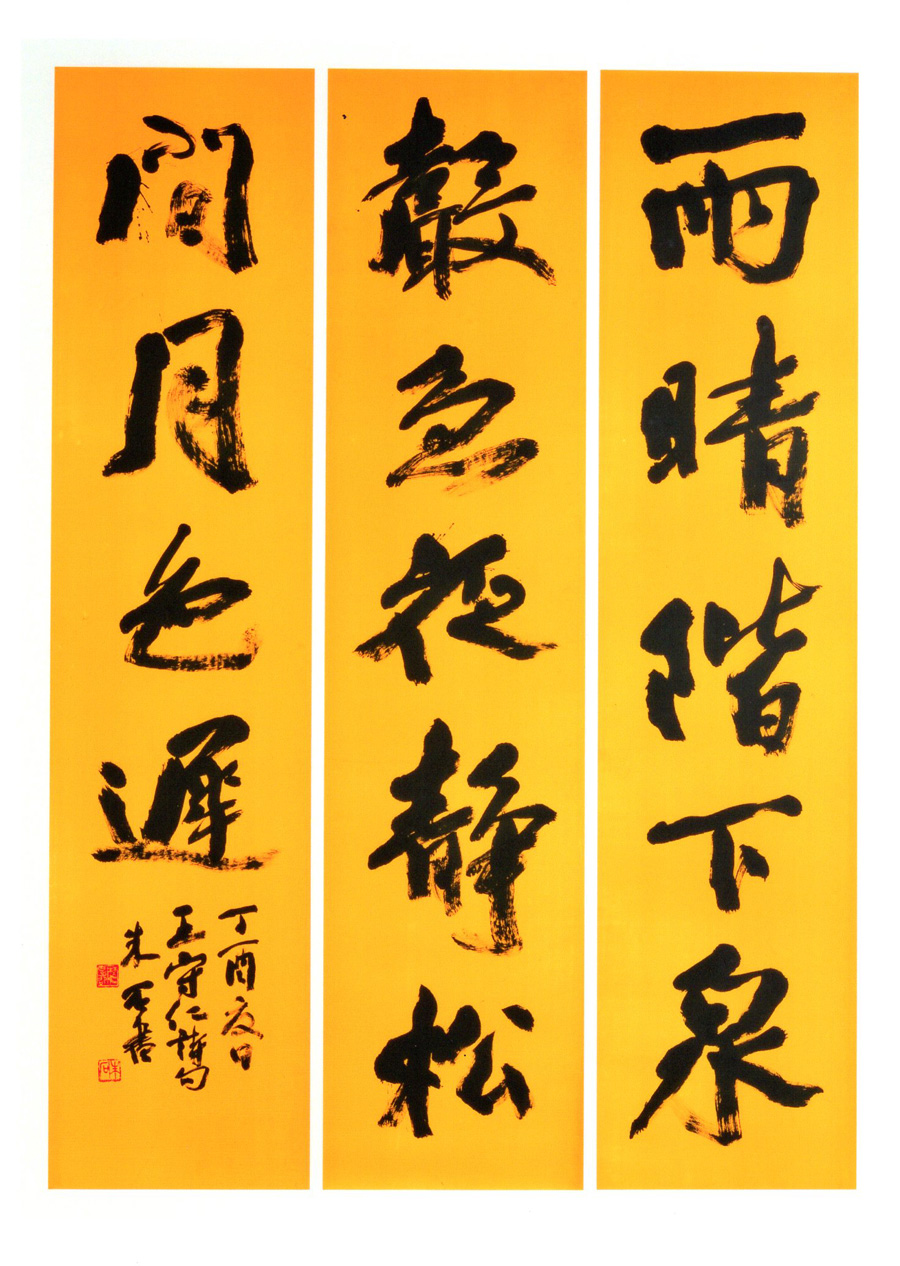 雨晴階下泉
聲急夜静松
間月色遲
丁酉夏日
王守仁詩句
朱石書
朱石